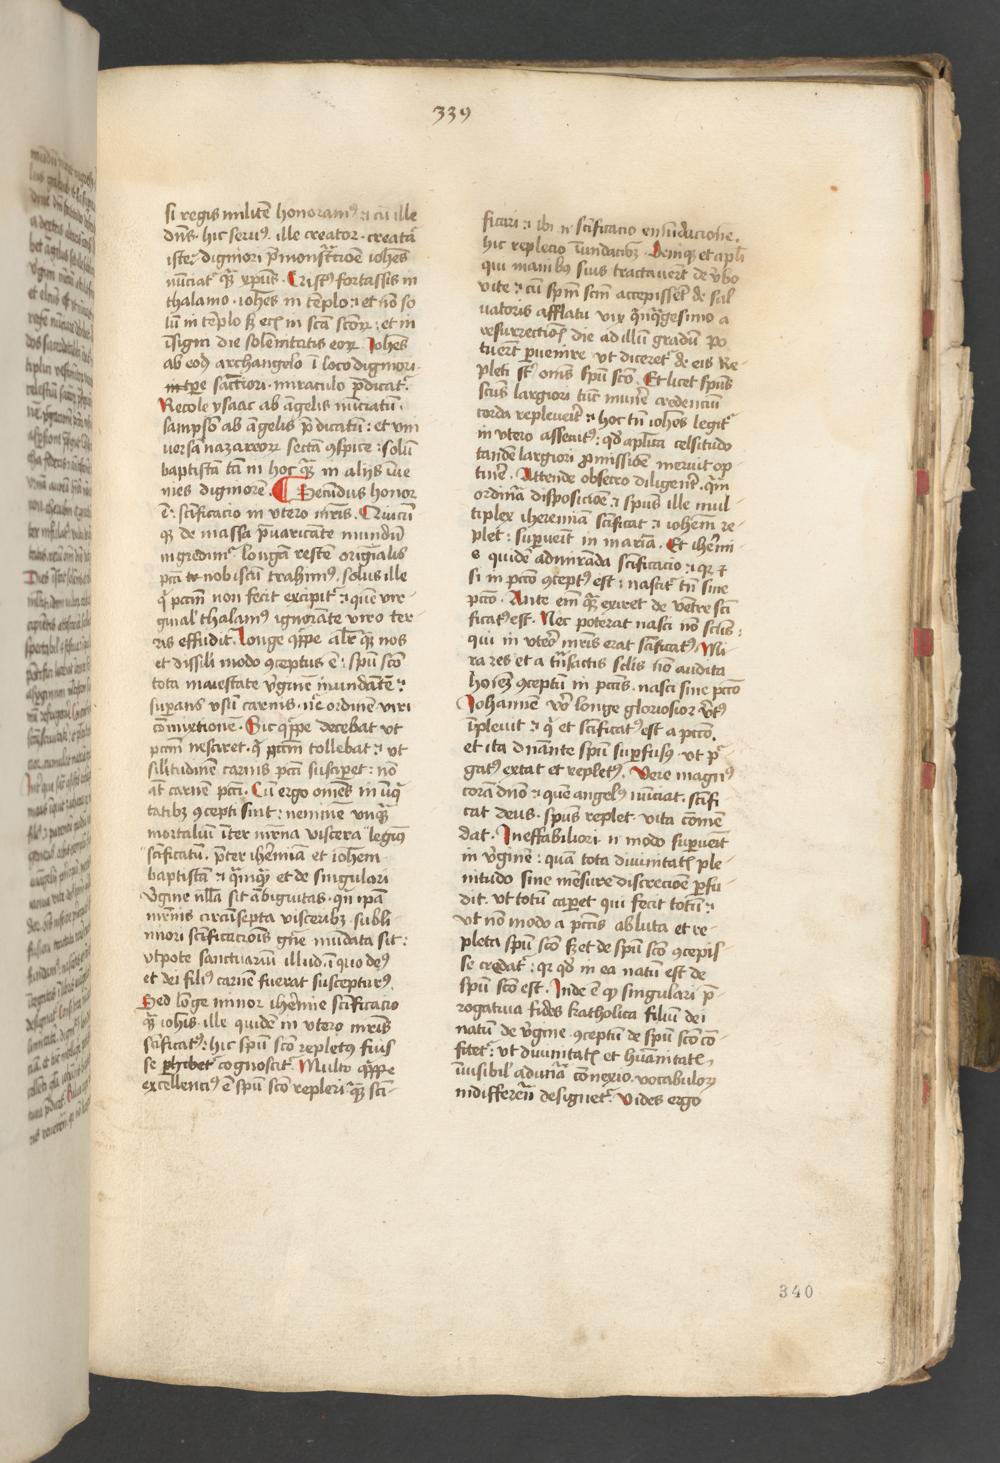 339
si regis militē honoramꝰ ⁊ cū ille
dn̄s · hic seruꝰ · ille creator · creatā
iste · digniori p̄monstr̄acōe ioh̄es
nūciatꝰ qͣ xp̄us · Cristꝰ fortassis in
thalamo · ioh̄es in tēplo ⁊ et nō so
lū in tēplo s̄ ecī in scā scōꝝ : et in
īsigni die solēnitatis eoꝝ Ioh̄es
ab eod̄ archangelo ī loco digniori ·
sacciori · miraculo p̄dicatꝰ
Recole ysaac ab āgelis nūciatū ·
sampsō ab āgelis p̄dictatū : et vni
uersā nazareoꝝ sectā ꝯspice : solū
baptistā tā in hoc qͣ in alijs īue
nies digniorē · Secūdus honor
ē · sc̄ificacio in vtero mr̄is · Cū
qͣ de massa p̄uaricāte mundū
ingredimꝰ · longā restē originalis
pcc̄i nobiscū trahimꝰ · solus ille
q̄ pccm̄ non fecit excipitꝰ ⁊ quē vir
ginal thalamꝰ ignorāte viro ter
ris effudit · Longe qͥppe alr̄ qͣ nos
et dissili modo ꝯceptus ē · spū scō
tota maiestate v̄ginē inundāte ⁊
suꝑans vsū carnis · nō ordinē viri
cōmixtione · Sic qͥppe decebat vt
pccm̄ nesciret · q̄ pccm̄ tollebat ⁊ vt
silitudinē carnis pcc̄i susciꝑet : nō
at̄ carnē pcc̄i · Cū ergo om̄es in iniq̄
tatibꝫ ꝯcepti sint : neminē vnqͣ
mortaliū īter mr̄na viscera legimꝰ
sc̄ificatū · p̄ter ih̄emiā et ioh̄em
baptistā ⁊ qͣuis et de singulari
v̄gine nll̄a sit ābiguitas · qn̄ ipā
mr̄nis circūsepta visceribꝫ subli
miori sc̄ificacōnis gn̄e mūdata sit :
vtpote sanctuariū illud · ī quo deꝰ
et dei filiꝰ carnē fuerat suscepturꝰ
Sed longe minor ih̄emie sc̄ificacio
qͣ ioh̄is · ille quidē in vtero mr̄is
sc̄ificatꝰ : hic spū scō repletꝰ fuis
se ꝓhibet cognoscitꝰ Multo qͥppe
excellenciꝰ ē spū scō repleri qͣ sc̄i
ficari ⁊ ibi n̄ sc̄ificacio emūdacione ·
hic repletio īundacōibꝫ · Deniqꝫ et apl̄i
qui manibꝰ suis tractauerūt de v̄bo
vite ⁊ cū spm̄ scm̄ accepissēt de sal
uatoris afflatu vix qͥnqͣgesimo a
resurrectiōis die ad illū gradū po
tuerūt ꝑuenire vt diceretꝰ de eis Re
pleti sꝰt om̄s spū scō · Et licet spūs
scūs largiori tūc munere credenciū
corda repleuerit ⁊ hoc tn̄ ioh̄es legitꝰ
in vtero assecutꝰ : qd̄ aplica celsitudo
tandē largiori ꝓmissiōe meruit op
tinē · Attende obsecro diligent̄ · qͣm
ordinā disposicōe ⁊ spūs ille mul
tiplex iheremiā sc̄ificat ⁊ ioh̄em re
plet : suꝑuenit in mariā · Et ih̄emi
e quidē admirāda sc̄ificacio ⁊ qꝛ ⁊
si in pccō ꝯceptꝰ est : nascitꝰ tn̄ sine
pccō · Ante em̄ qͣ exiret de vētre sc̄i
ficatꝰ est · Nec poterat nasci nō scūs :
qui in vtero mr̄is erat sc̄ificatꝰ Mi
ra res et a tn̄sactis sclis nō audita
hoīem ꝯceptū in pccīs · nasci sine pccō
Iohannē v̄o longe gloriosior v̄tꝰ
īpleuit ⁊ q̄ et sc̄ificatꝰ est a pccō ·
et ita dn̄ante spū suꝑfusꝰ vt p̄
gatꝰ extat et repletꝰ · Vere magnꝰ
corā dn̄o ⁊ quē angelꝰ nūciat · sc̄ifi
cat deus · spūs replet · vita cōmē
dat · Ineffabiliori n̄ modo suꝑuenit
in v̄ginē : quā tota diuinitatꝭ ple
nitudo sine mēsure discrecōe ꝑfu
dit · vt totū caꝑet qui fecit totū ⁊
vt nō modo a pccīs abluta et re
pleta spū scō s̄ et de spū scō ꝯcepis
se credatꝰ : qꝛ qd̄ in ea natū est de
spū scō est · Inde ē qꝫ singulari p̄
rogatiua fides katholica filiū dei
natū de v̄gine · ꝯceptū de spū scō cō
fitetꝰ : vt diuinitatꝭ et hūanitatꝭ
īuisibil adunā cōnexio · vocabuloꝝ
indifferēn designetꝰ · Vides ergo
340